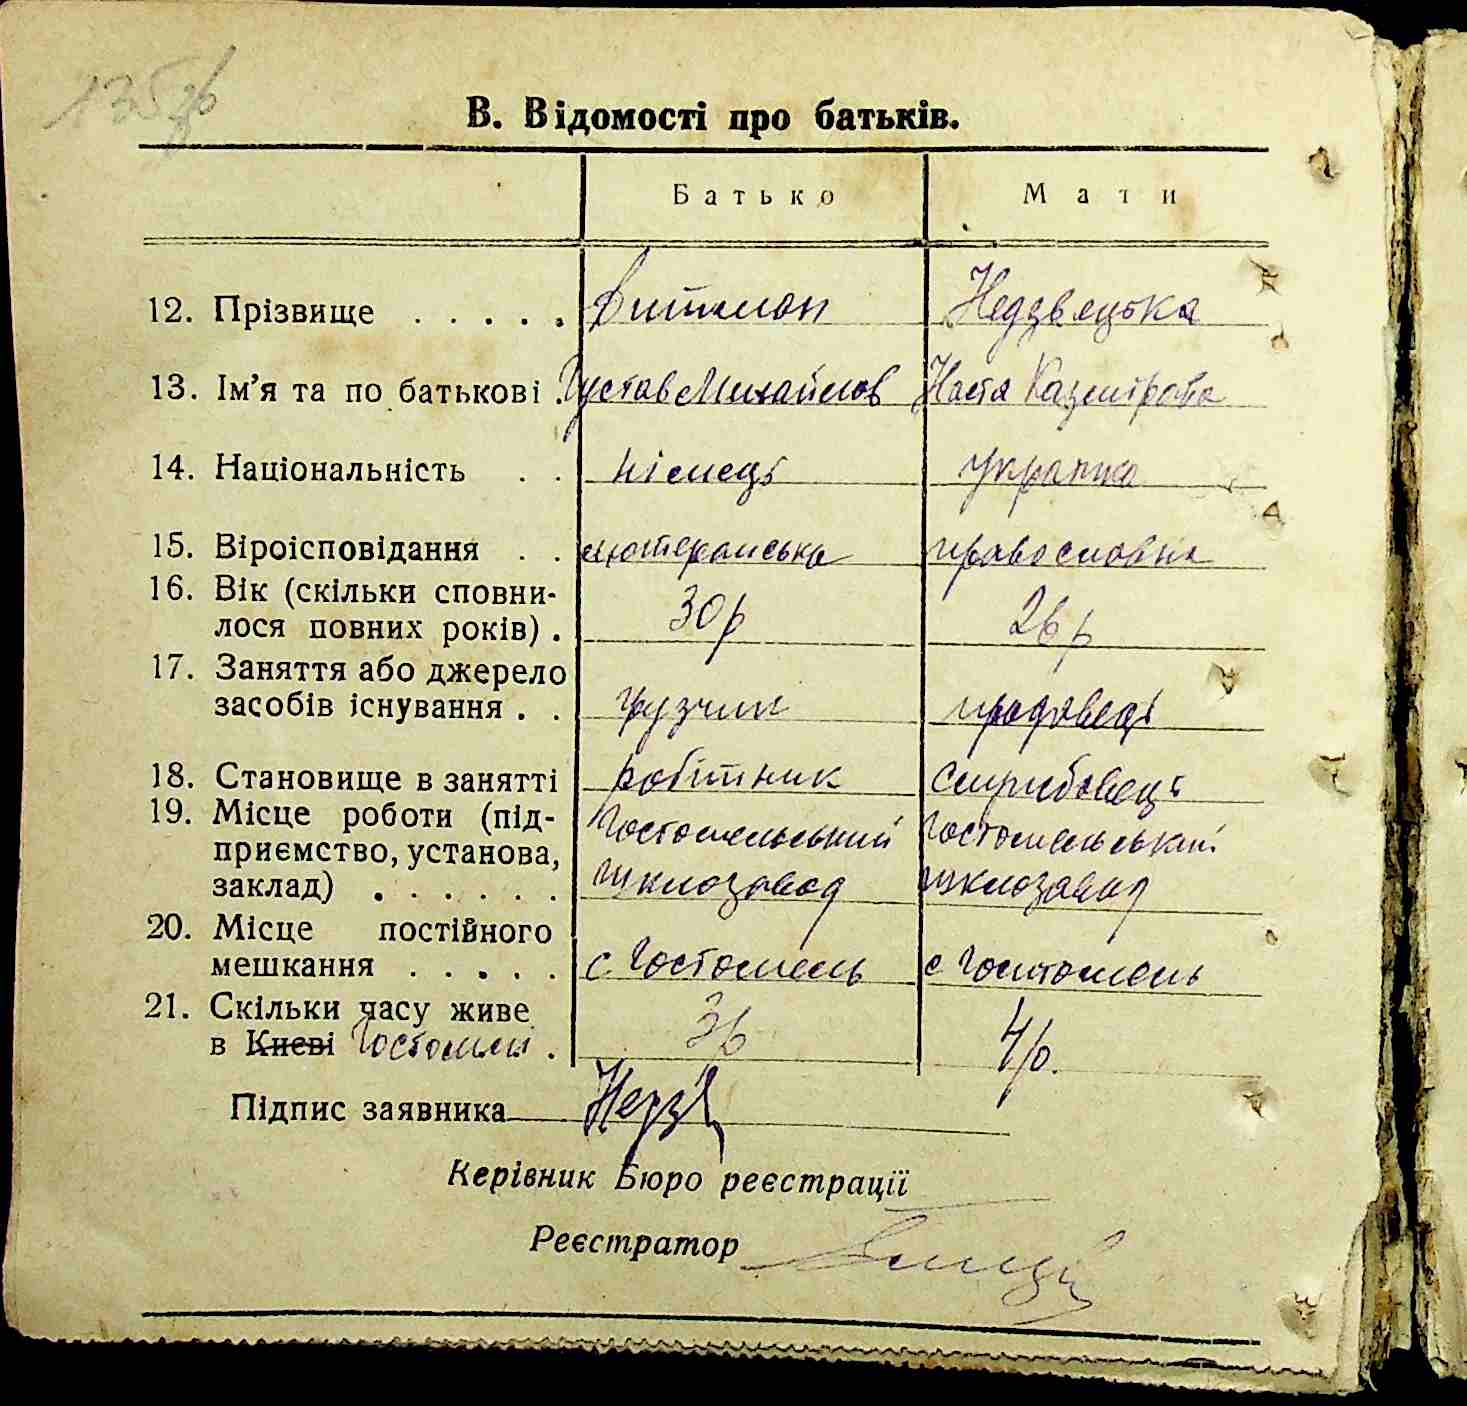 135зв
В. Відомості про батьків.
Батько Мати
12. Прізвище . . . . . Витман Недзвецька
13. Ім'я та по батькові . Густав Михайлов Настя Казимірова
14. Національність . . німець українка
15. Віроісповідання . . лютеранська православна
16. Вік (скільки сповни-
лося повних років) . 30 р 26 р
17. Заняття або джерело
засобів існування . . грузчик продавець
18. Становище в занятті робітник службовець
19. Місце роботи (під- Гостомельський Гостомельський
приємство, установа, шклозавод шклозавод
заклад) . . . . . .
20. Місце постійного
мешкання . . . . . с. Гостомель с Гостомель
21. Скільки часу живе
в Києві Гостомлі . 3 р 4 р.
Підпис заявника Недзв
Керівник Бюро реєстрації
Реєстратор